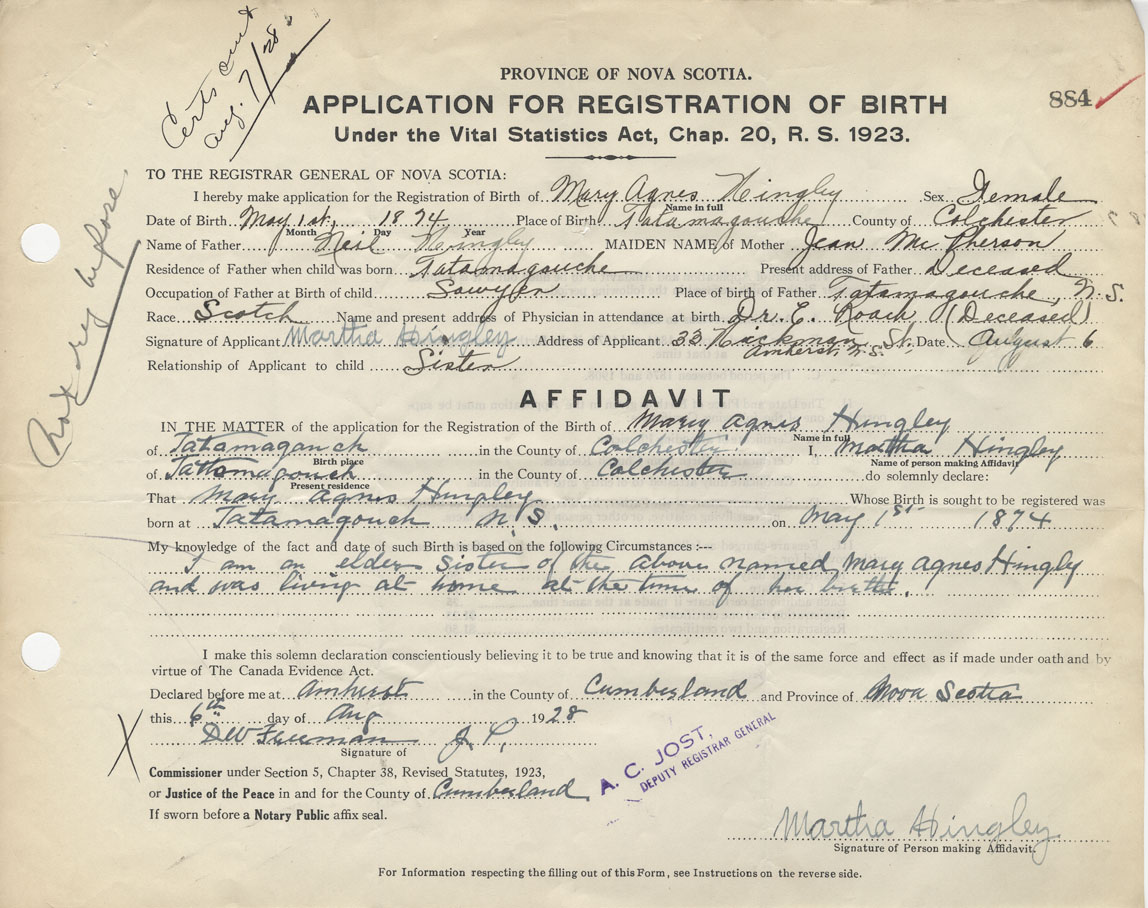 Certs out
Aug. 7/28
Notary before
PROVINCE OF NOVA SCOTIA.
884
APPLICATION FOR REGISTRATION OF BIRTH
Under the Vital Statistics Act, Chap. 20, R. S. 1923.
TO THE REGISTRAR GENERAL OF NOVA SCOTIA:
I hereby make application for the Registration of Birth of Mary Agnes Hingley Sex Female
Name in full
Date of Birth May 1st, 1874 Place of Birth Tatamagouche County of Colchester
Month Day Year
Name of Father Neil Hingley MAIDEN NAME of Mother Jean McPherson
Residence of Father when child was born Tatamagouche Present address of Father Deceased
Occupation of Father at Birth of child Sawyer Place of birth of Father Tatamagouche, N.S.
Race Scotch Name and present address of Physician in attendance at birth Dr. E. Roach (Deceased)
Signature of Applicant Martha Hingley Address of Applicant 33 Hickman St. Date August 6
Amherst, N.S.
Relationship of Applicant to child Sister
AFFIDAVIT
IN THE MATTER of the application for the Registration of the Birth of Mary Agnes Hingley
Name in full
of Tatamagouch in the County of Colchester I, Martha Hingley
Birth place Name of person making Affidavit
of Tattamagouch in the County of Colchester do solemnly declare:
Present residence
That Mary Agnes Hingley Whose Birth is sought to be registered was
born at Tatamagouch N.S. on May 1st 1874
My knowledge of the fact and date of such Birth is based on the following Circumstances :---
I am an elder Sister of the above named Mary Agnes Hingley
and was living at home at the time of her birth.
I make this solemn declaration conscientiously believing it to be true and knowing that it is of the same force and effect as if made under oath and by
virtue of The Canada Evidence Act.
Declared before me at Amherst in the County of Cumberland and Province of Nova Scotia
this 6th day of Aug 1928
X DW Freeman J.P.
Signature of
Commissioner under Section 5, Chapter 38, Revised Statutes, 1923,
or Justice of the Peace in and for the County of Cumberland
If sworn before a Notary Public affix seal.
A. C. JOST,
DEPUTY REGISTRAR GENERAL
Martha Hingley
Signature of Person making Affidavit.
For Information respecting the filling out of this Form, see Instructions on the reverse side.